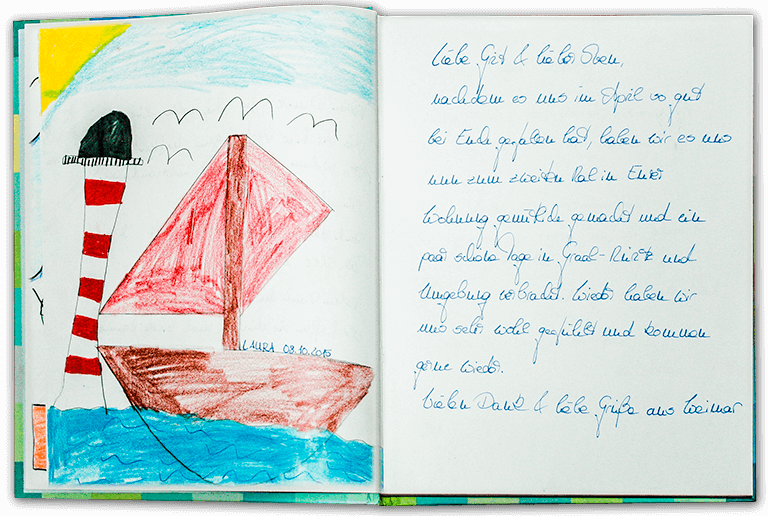 LAURA 03.10.2015
Liebe Grit & lieber Sven,
nachdem es uns im April so gut
bei Euch gefallen hat, haben wir es uns
nun zum zweiten Mal in Eurer
Wohnung gemütlich gemacht und ein
paar schöne Tage in Graal-Müritz und
Umgebung verbracht. Wieder haben wir
uns sehr wohl gefühlt und kommen
gerne wieder.
Vielen Dank & liebe Grüße aus Weimar